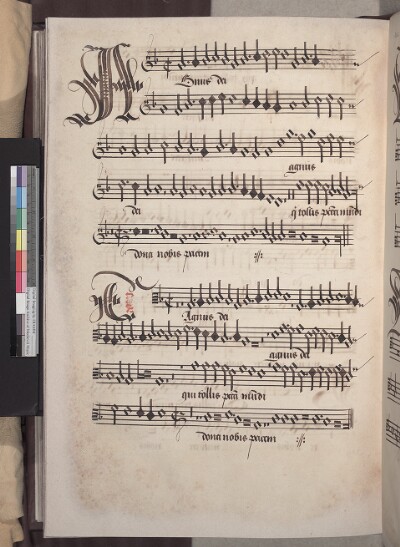 Agnus dei
agnus
dei q tollis peccata mundi
dona nobis pacem :||:
Agnus dei
agnus dei
qui tollis pctā mūdi
dona nobis pacem :||: